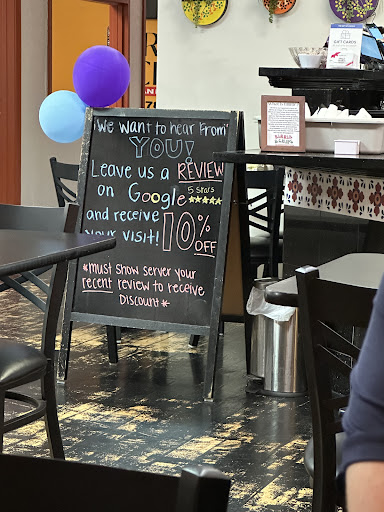 We want to hear From
YOU!
Leave us a REVIEW
on Google 5 stars
and receive 10%
your visit! OFF
*must show server your
recent review to receive
Discount*
GIFT CARDS